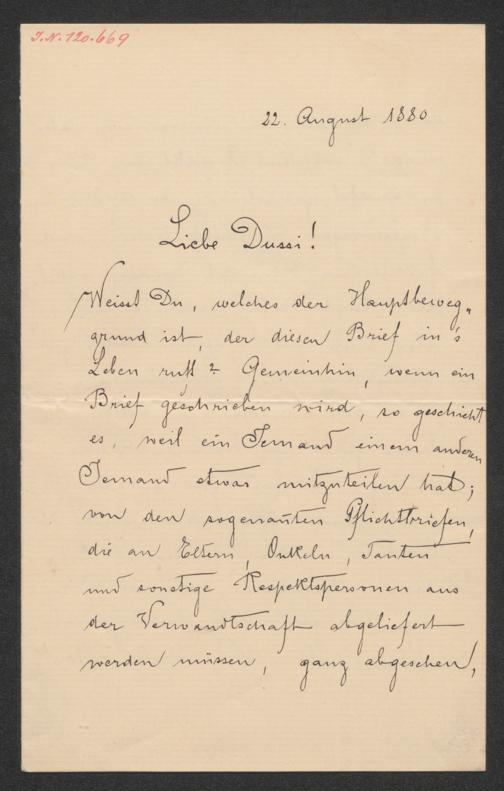 J.N. 120.669
22. August 1880
Liebe Dussi!
Weisst Du, welches der Hauptbeweg„
grund ist, der diesen Brief in's
Leben ruft? Gemeinhin, wenn ein
Brief geschrieben wird, so geschieht
es, weil ein Jemand einem anderen
Jemand etwas mitzuteilen hat;
von den sogenan̄ten Pflichtbriefen,
die an Eltern, Onkeln, Tanten
und sonstige Respektspersonen aus
der Verwandtschaft abgeliefert
werden müssen, ganz abgesehen!